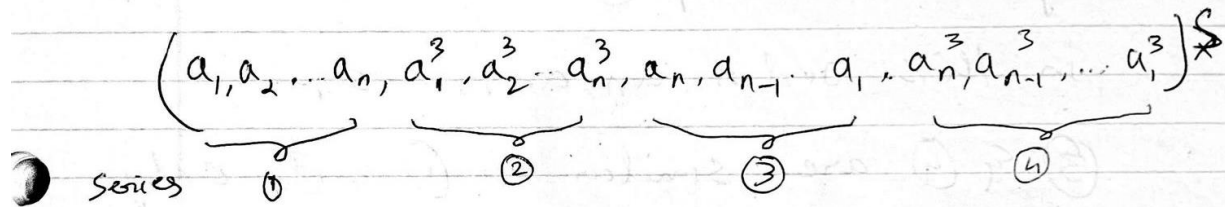 (a₁, a₂ ... aₙ, a₁³, a₂³ .. aₙ³, aₙ, aₙ₋₁ .. a₁, aₙ³, aₙ₋₁³, ... a₁³)
series ① ② ③ ④